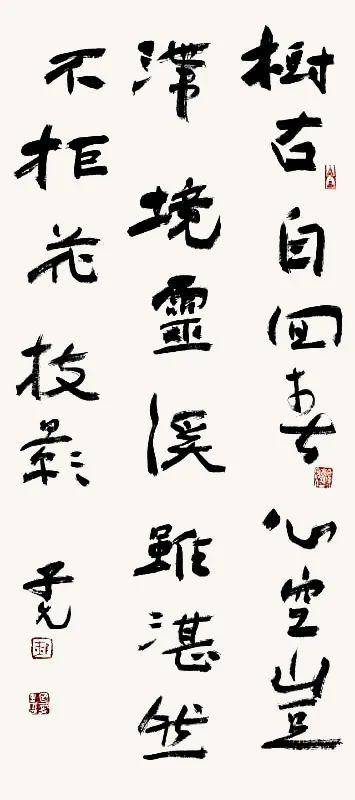 樹古自回春心空豈
滯境靈溪雖湛然
不拒花枝影